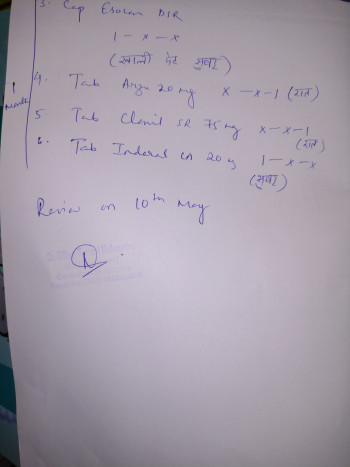 3. Cap Esocon DSR
1 - x - x
(खाली पेट सुबह)
4. Tab 20 mg x - x - 1 (रात)
1 Month
5 Tab Clonil SR 75 mg x - x - 1
(रात)
6. Tab Inderal LA 20 1 - x - x
(सुबह)
Review on 10th May